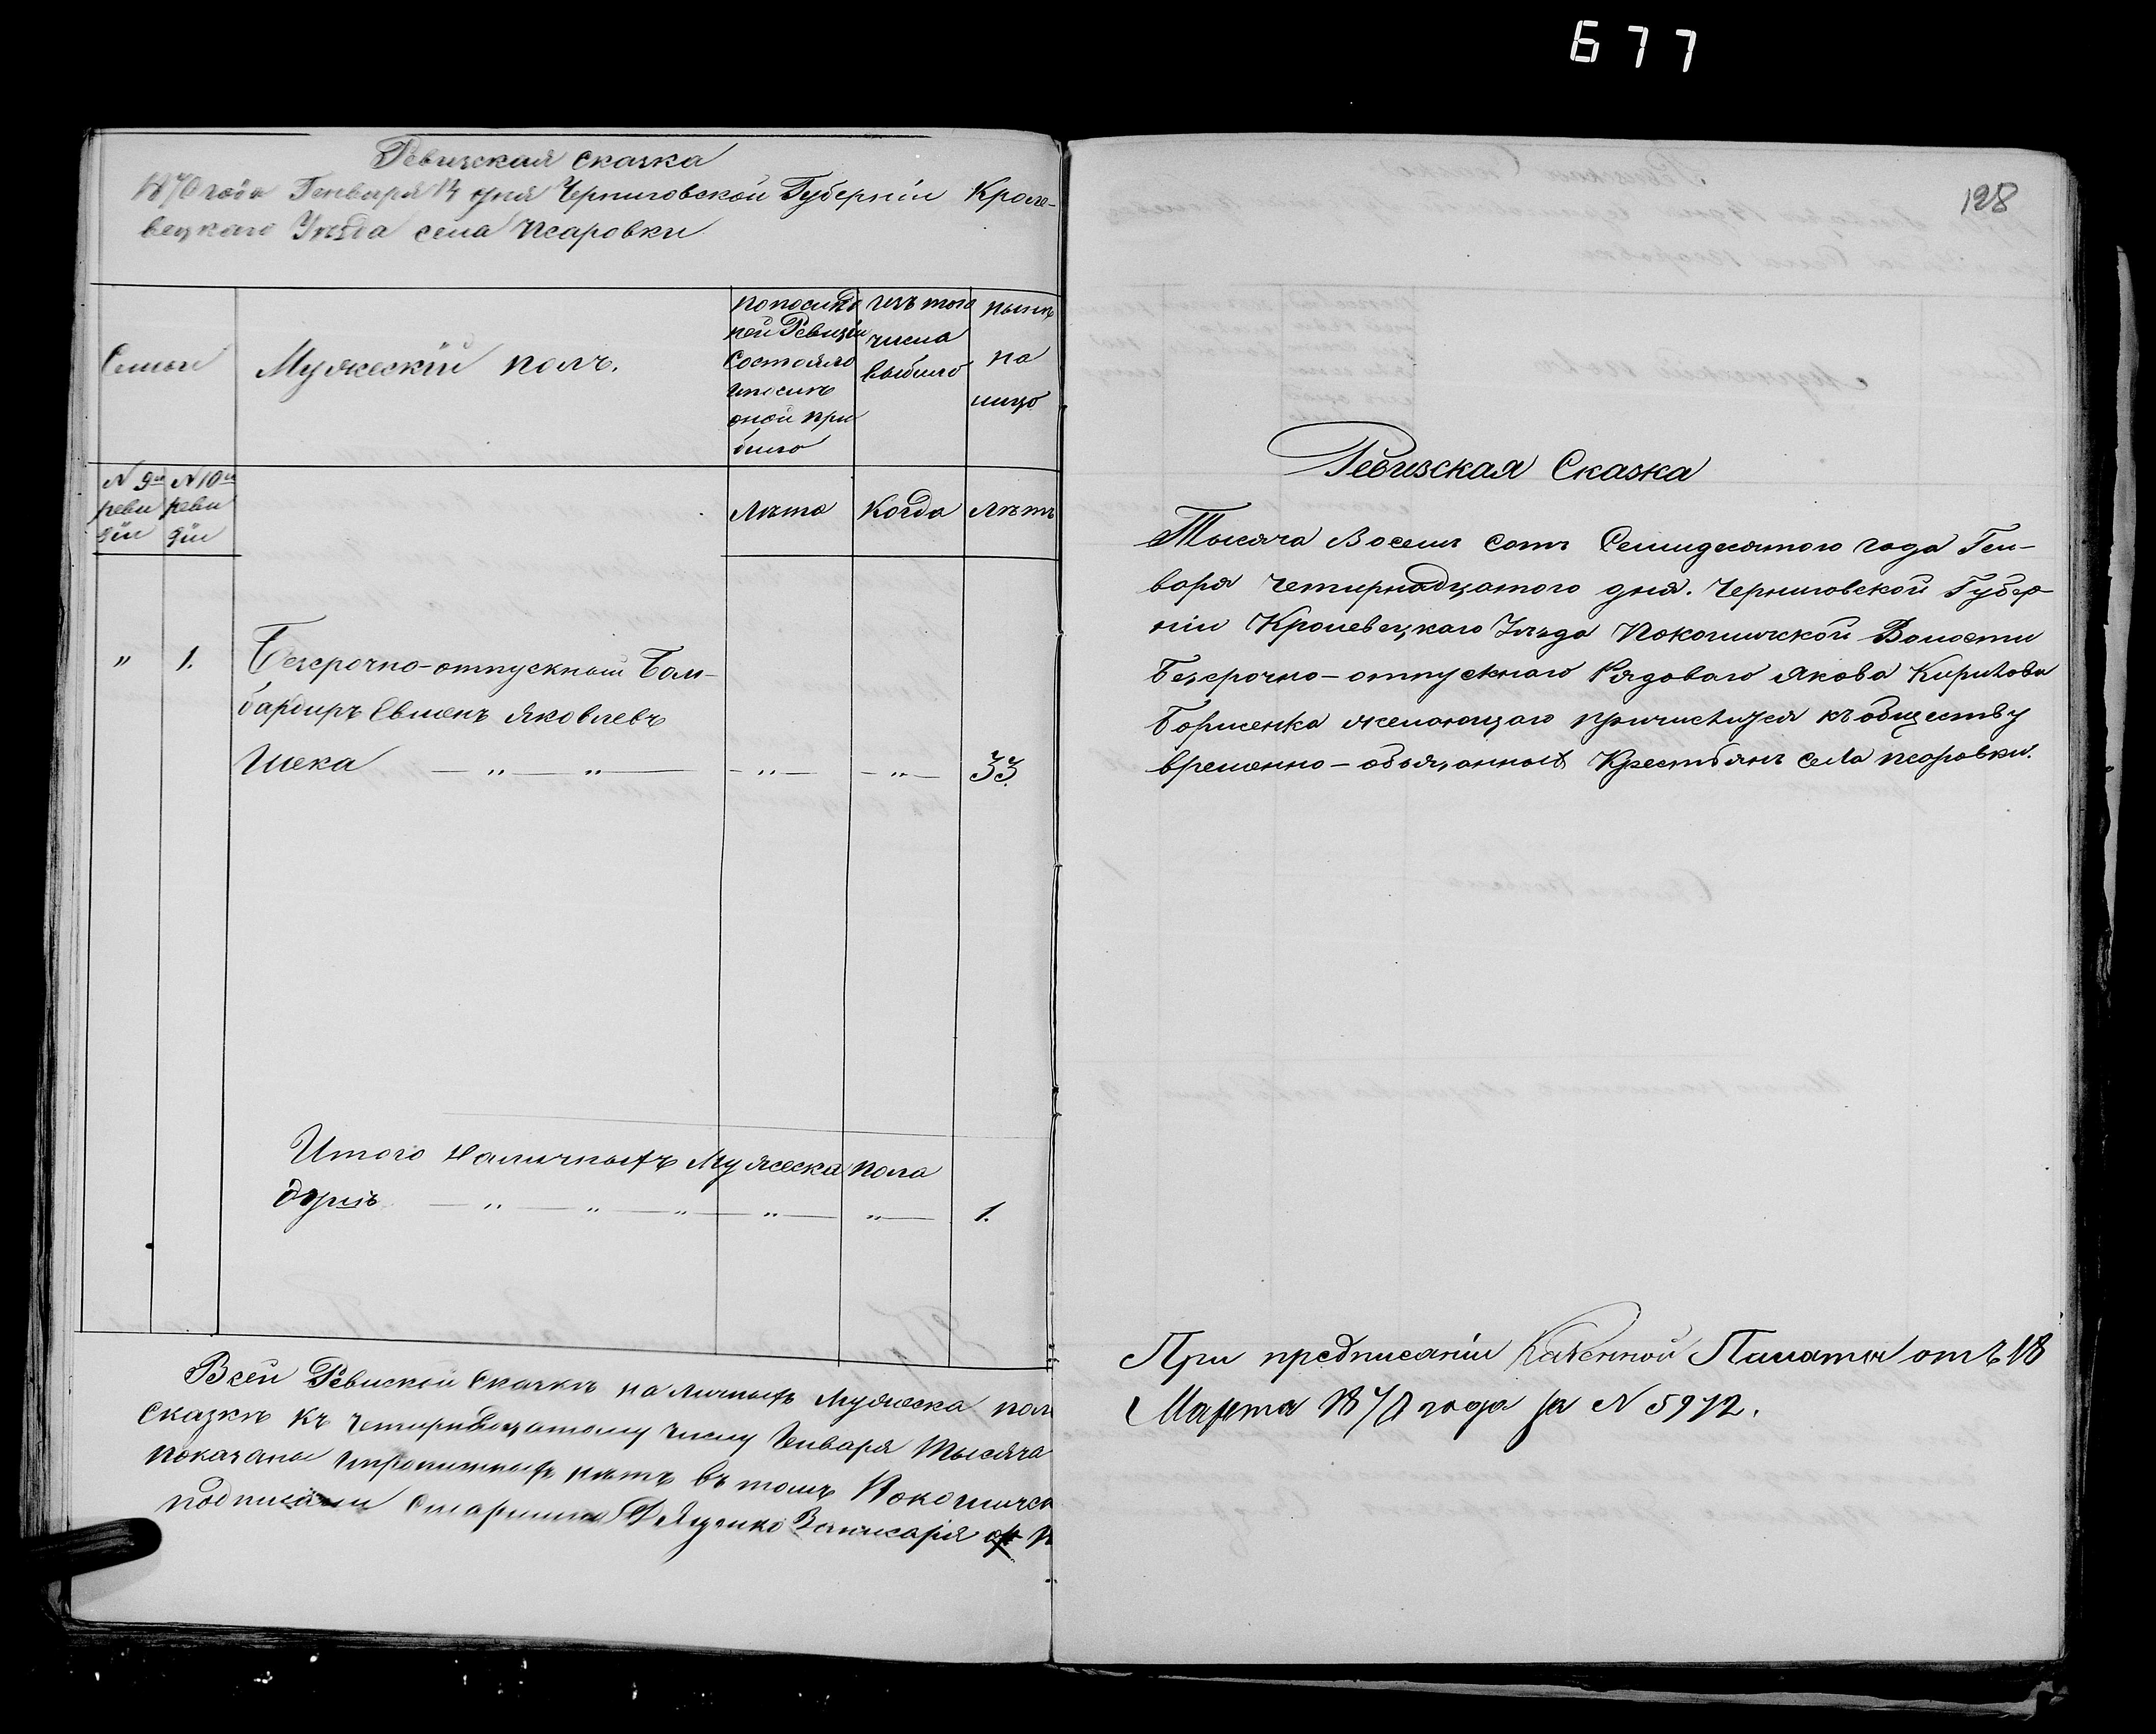 677
Ревизская сказка
1870 года Генваря 14 дня Черниговской Губерніи Кроле-
вецкаго Уѣзда села Псаровки
Семьи
Мужескій полъ.
по послѣд
ней Ревизіи
состояло
и послѣ
оной при
было
изъ того
числа
выбыло
нынѣ
на
лицо
N 9й
реви
зіи
N 10й
реви
зіи
Лѣта
Когда
Лѣтъ
" 1. Безсрочно-отпускный Бом-
бардиръ Евменъ Яковлевъ
Шека — " — " — — " — — " — 33.
Итого наличныхъ Мужеска пола
душъ — " — " — " — " — " — 1.
Всей Ревиской Сказкѣ наличныхъ Мужеска пол
Сказкѣ къ четырнадцатому числу Генваря Тысяча
показана и прописныхъ нѣтъ въ томъ Покошичск
подписали Старшина Яценко Запісаря
128
Ревизская Сказка
Тысяча Восемь сотъ Семидесятого года Ген-
варя четырнадцатого дня. Черниговской Губер
ніи Кролевецкаго Уѣзда Покошичской Волости
Безсрочно-отпускнаго Рядоваго Якова Кирилова
Борисенка желающаго причислится къ обществу
временно-обязанныхъ Крестьянъ села Псаровки.
При предписаніи Казенной Палаты отъ 18
Марта 1870 года за N 5972.